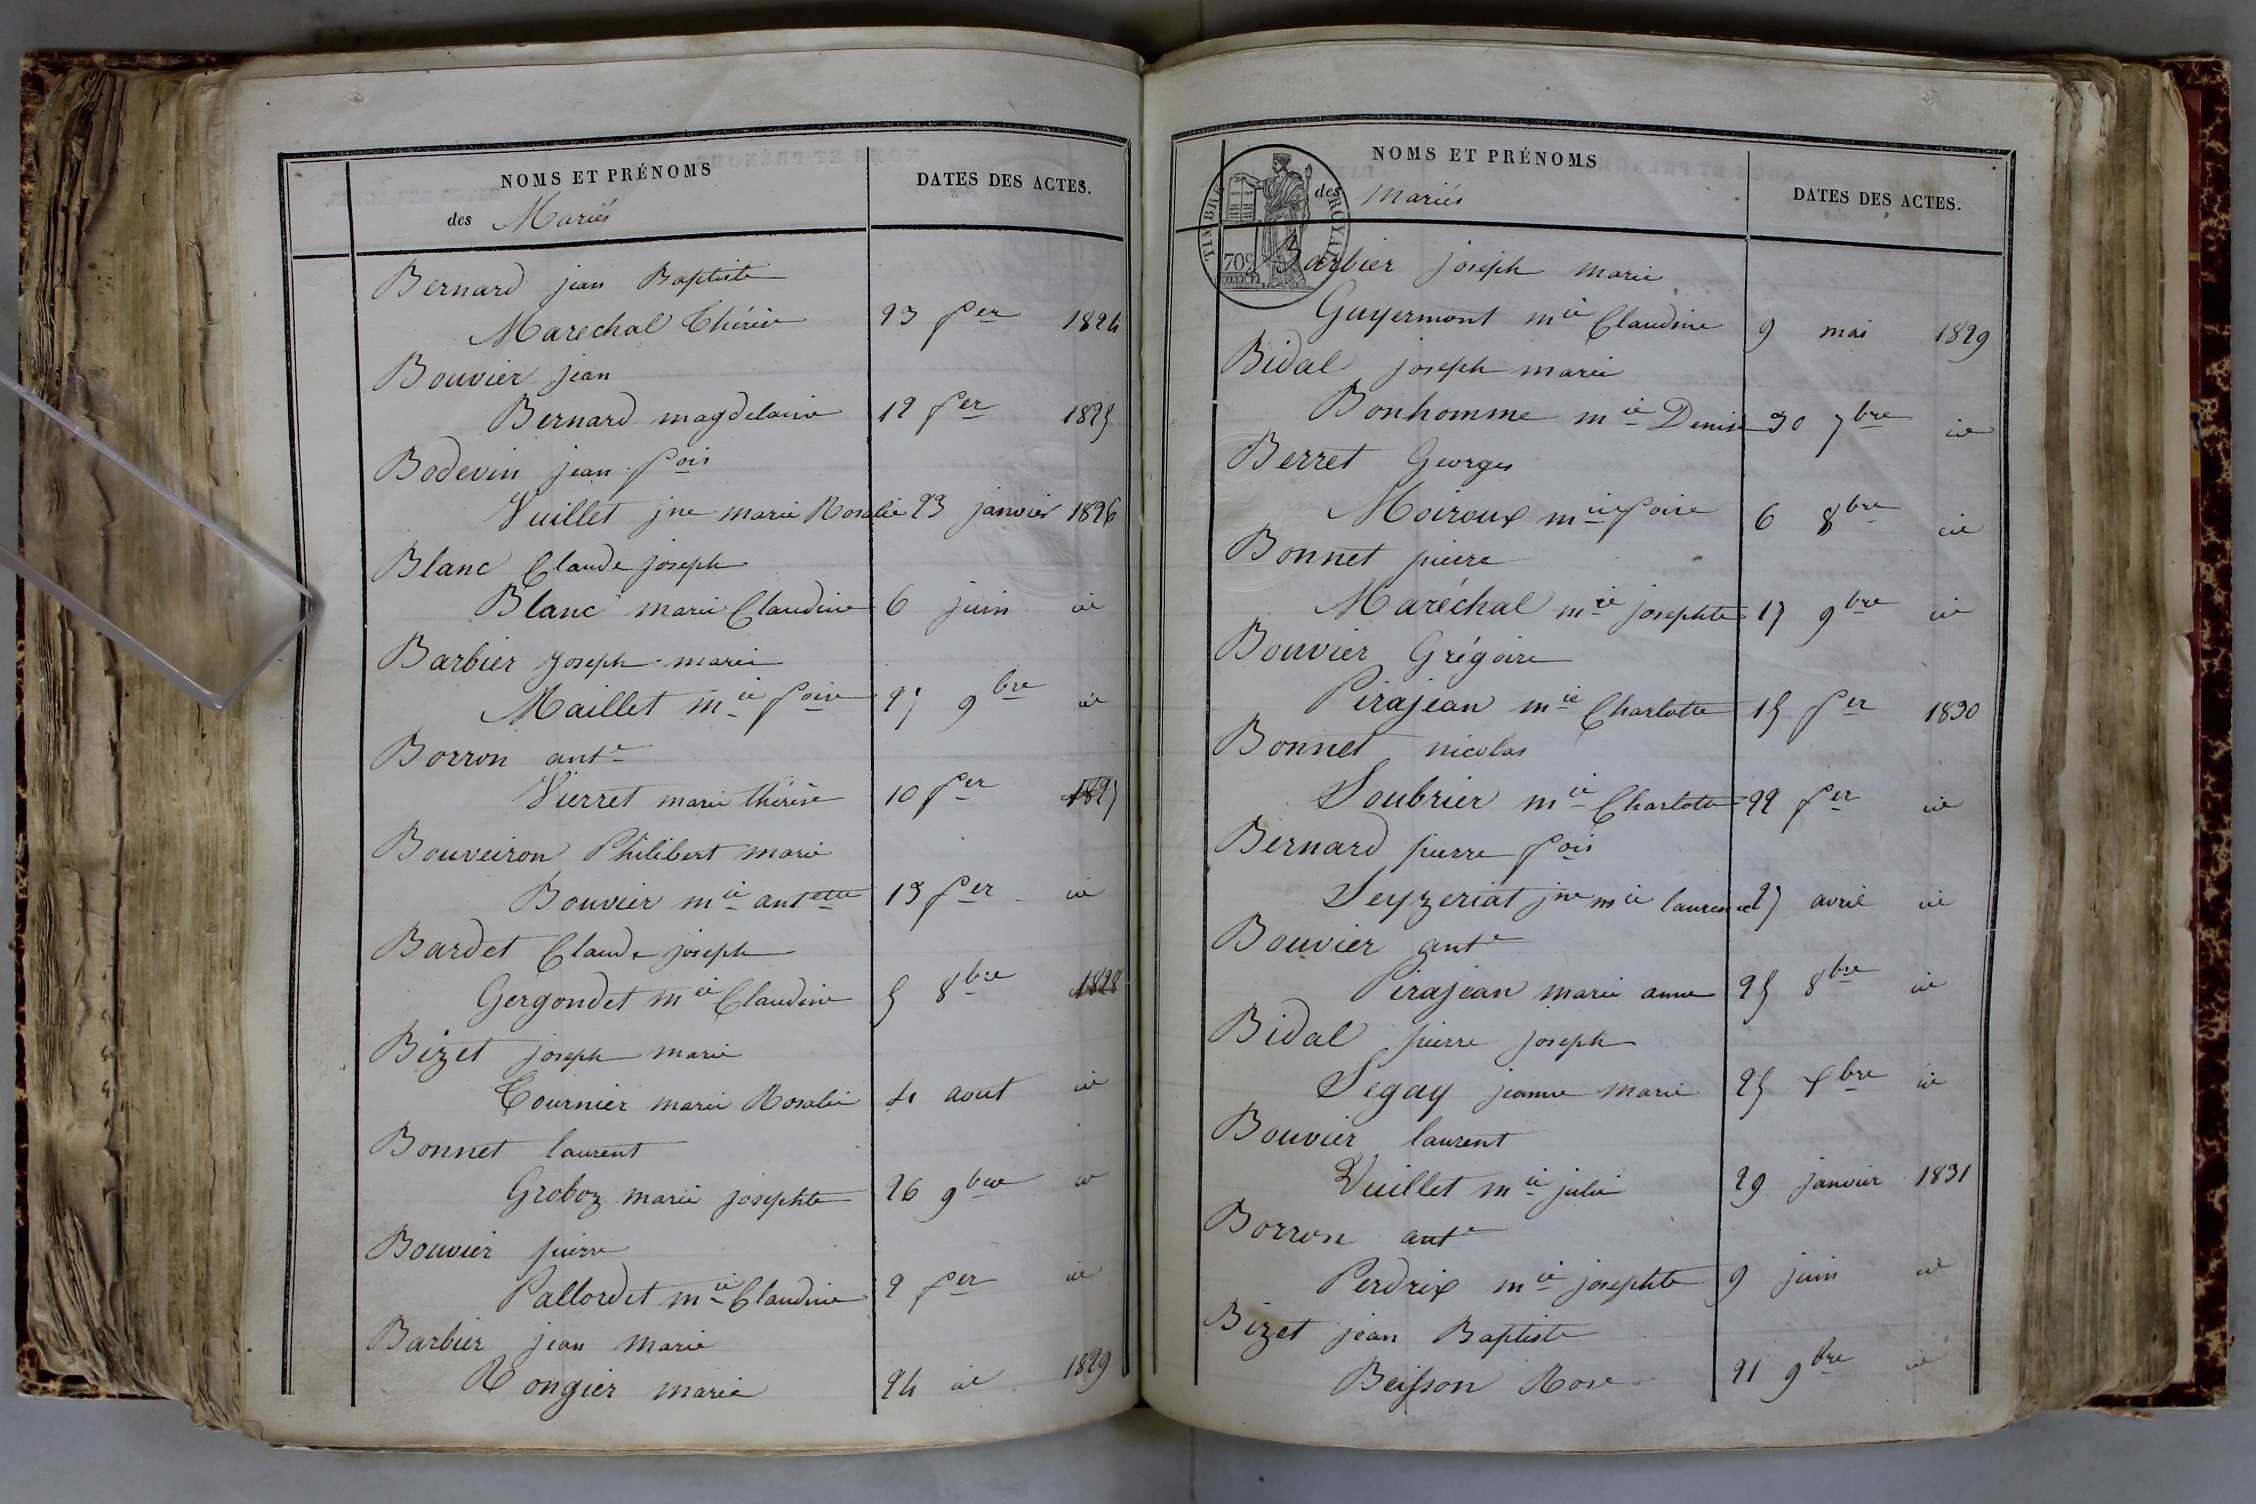 NOMS ET PRÉNOMS
des Mariés
DATES DES ACTES.
Bernard jean Baptiste
Marechal Thérèse 23 fer 1824
Bouvier jean
Bernard magdelaine 12 fer 1825
Bodevin jean fois
Vuillet jne marie Rosalie 23 janvier 1826
Blanc Claude joseph
Blanc marie Claudine 6 juin id
Barbier joseph marie
Maillet mie foise 27 9bre id
Borron ante
Vierret marie thérèse 10 fer 1827
Bouveiron Philibert marie
Bouvier mie antette 13 fer id
Bardet Claude joseph
Gergondet mie Claudine 5 8bre 1828
Bizet joseph marie
Tournier marie Rosalie 4 aout id
Bonnet laurent
Groboz marie josephte 26 9bre id
Bouvier pierre
Pallordet mie Claudine 2 fer id
Barbier jean marie
Rongier marie 24 id 1829
NOMS ET PRÉNOMS
des Mariés
DATES DES ACTES.
TIMBRE ROYAL
70c
Barbier joseph marie
Guyermont mie Claudine 9 mai 1829
Bidal joseph marie
Bonhomme mie Denise 30 7bre id
Berret Georges
Moiroux mie foise 6 8bre id
Bonnet pierre
Maréchal mie josephte 17 9bre id
Bouvier Grégoire
Pirajean mie Charlotte 15 fer 1830
Bonnet nicolas
Soubrier mie Charlotte 22 fer id
Bernard pierre fois
Seyzeriat jne mie laurence 27 avril id
Bouvier ante
Pirajean marie anne 25 8bre id
Bidal pierre joseph
Segay jeanne marie 25 xbre id
Bouvier laurent
Vuillet mie julie 29 janvier 1831
Borron ante
Perdrix mie josephte 9 juin id
Bizet jean Baptiste
Beisson Rose 21 9bre id